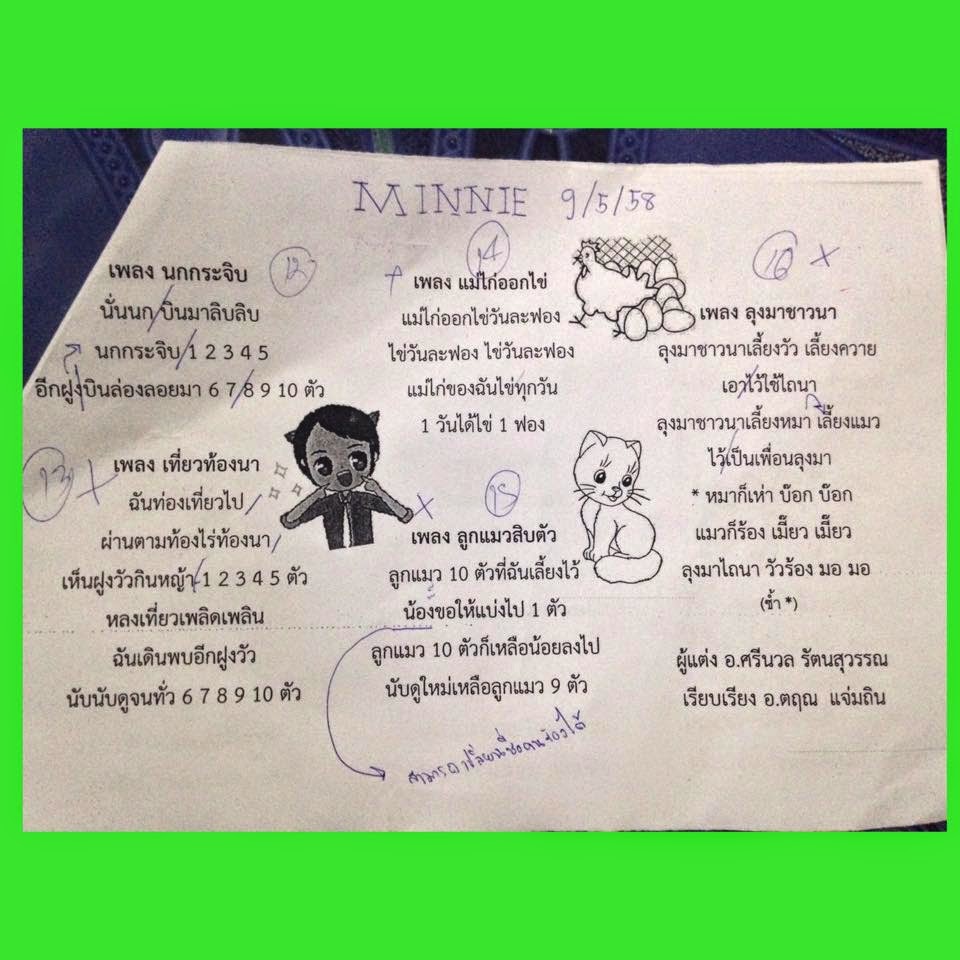 MINNIE 9/5/58
เพลง นกกระจิบ 12
นั่นนก บินมาลิบลิบ
นกกระจิบ 1 2 3 4 5
อีกฝูงบินล่องลอยมา 6 7 8 9 10 ตัว
13 เพลง เที่ยวท้องนา
ฉันท่องเที่ยวไป
ผ่านตามท้องไร่ท้องนา
เห็นฝูงวัวกินหญ้า 1 2 3 4 5 ตัว
หลงเที่ยวเพลิดเพลิน
ฉันเดินพบอีกฝูงวัว
นับนับดูจนทั่ว 6 7 8 9 10 ตัว
14
เพลง แม่ไก่ออกไข่
แม่ไก่ออกไข่วันละฟอง
ไข่วันละฟอง ไข่วันละฟอง
แม่ไก่ของฉันไข่ทุกวัน
1 วันได้ไข่ 1 ฟอง
15
เพลง ลูกแมวสิบตัว
ลูกแมว 10 ตัวที่ฉันเลี้ยงไว้
น้องขอให้แบ่งไป 1 ตัว
ลูกแมว 10 ตัวก็เหลือน้อยลงไป
นับดูใหม่เหลือลูกแมว 9 ตัว
16 x
เพลง ลุงมาชาวนา
ลุงมาชาวนาเลี้ยงวัว เลี้ยงควาย
เอาไว้ใช้ไถนา
ลุงมาชาวนาเลี้ยงหมา เลี้ยงแมว
ไว้เป็นเพื่อนลุงมา
* หมาก็เห่า บ๊อก บ๊อก
แมวก็ร้อง เมี๊ยว เมี๊ยว
ลุงมาไถนา วัวร้อง มอ มอ
(ซ้ำ *)
ผู้แต่ง อ.ศรีนวล รัตนสุวรรณ
เรียบเรียง อ.ตฤณ แจ่มถิน